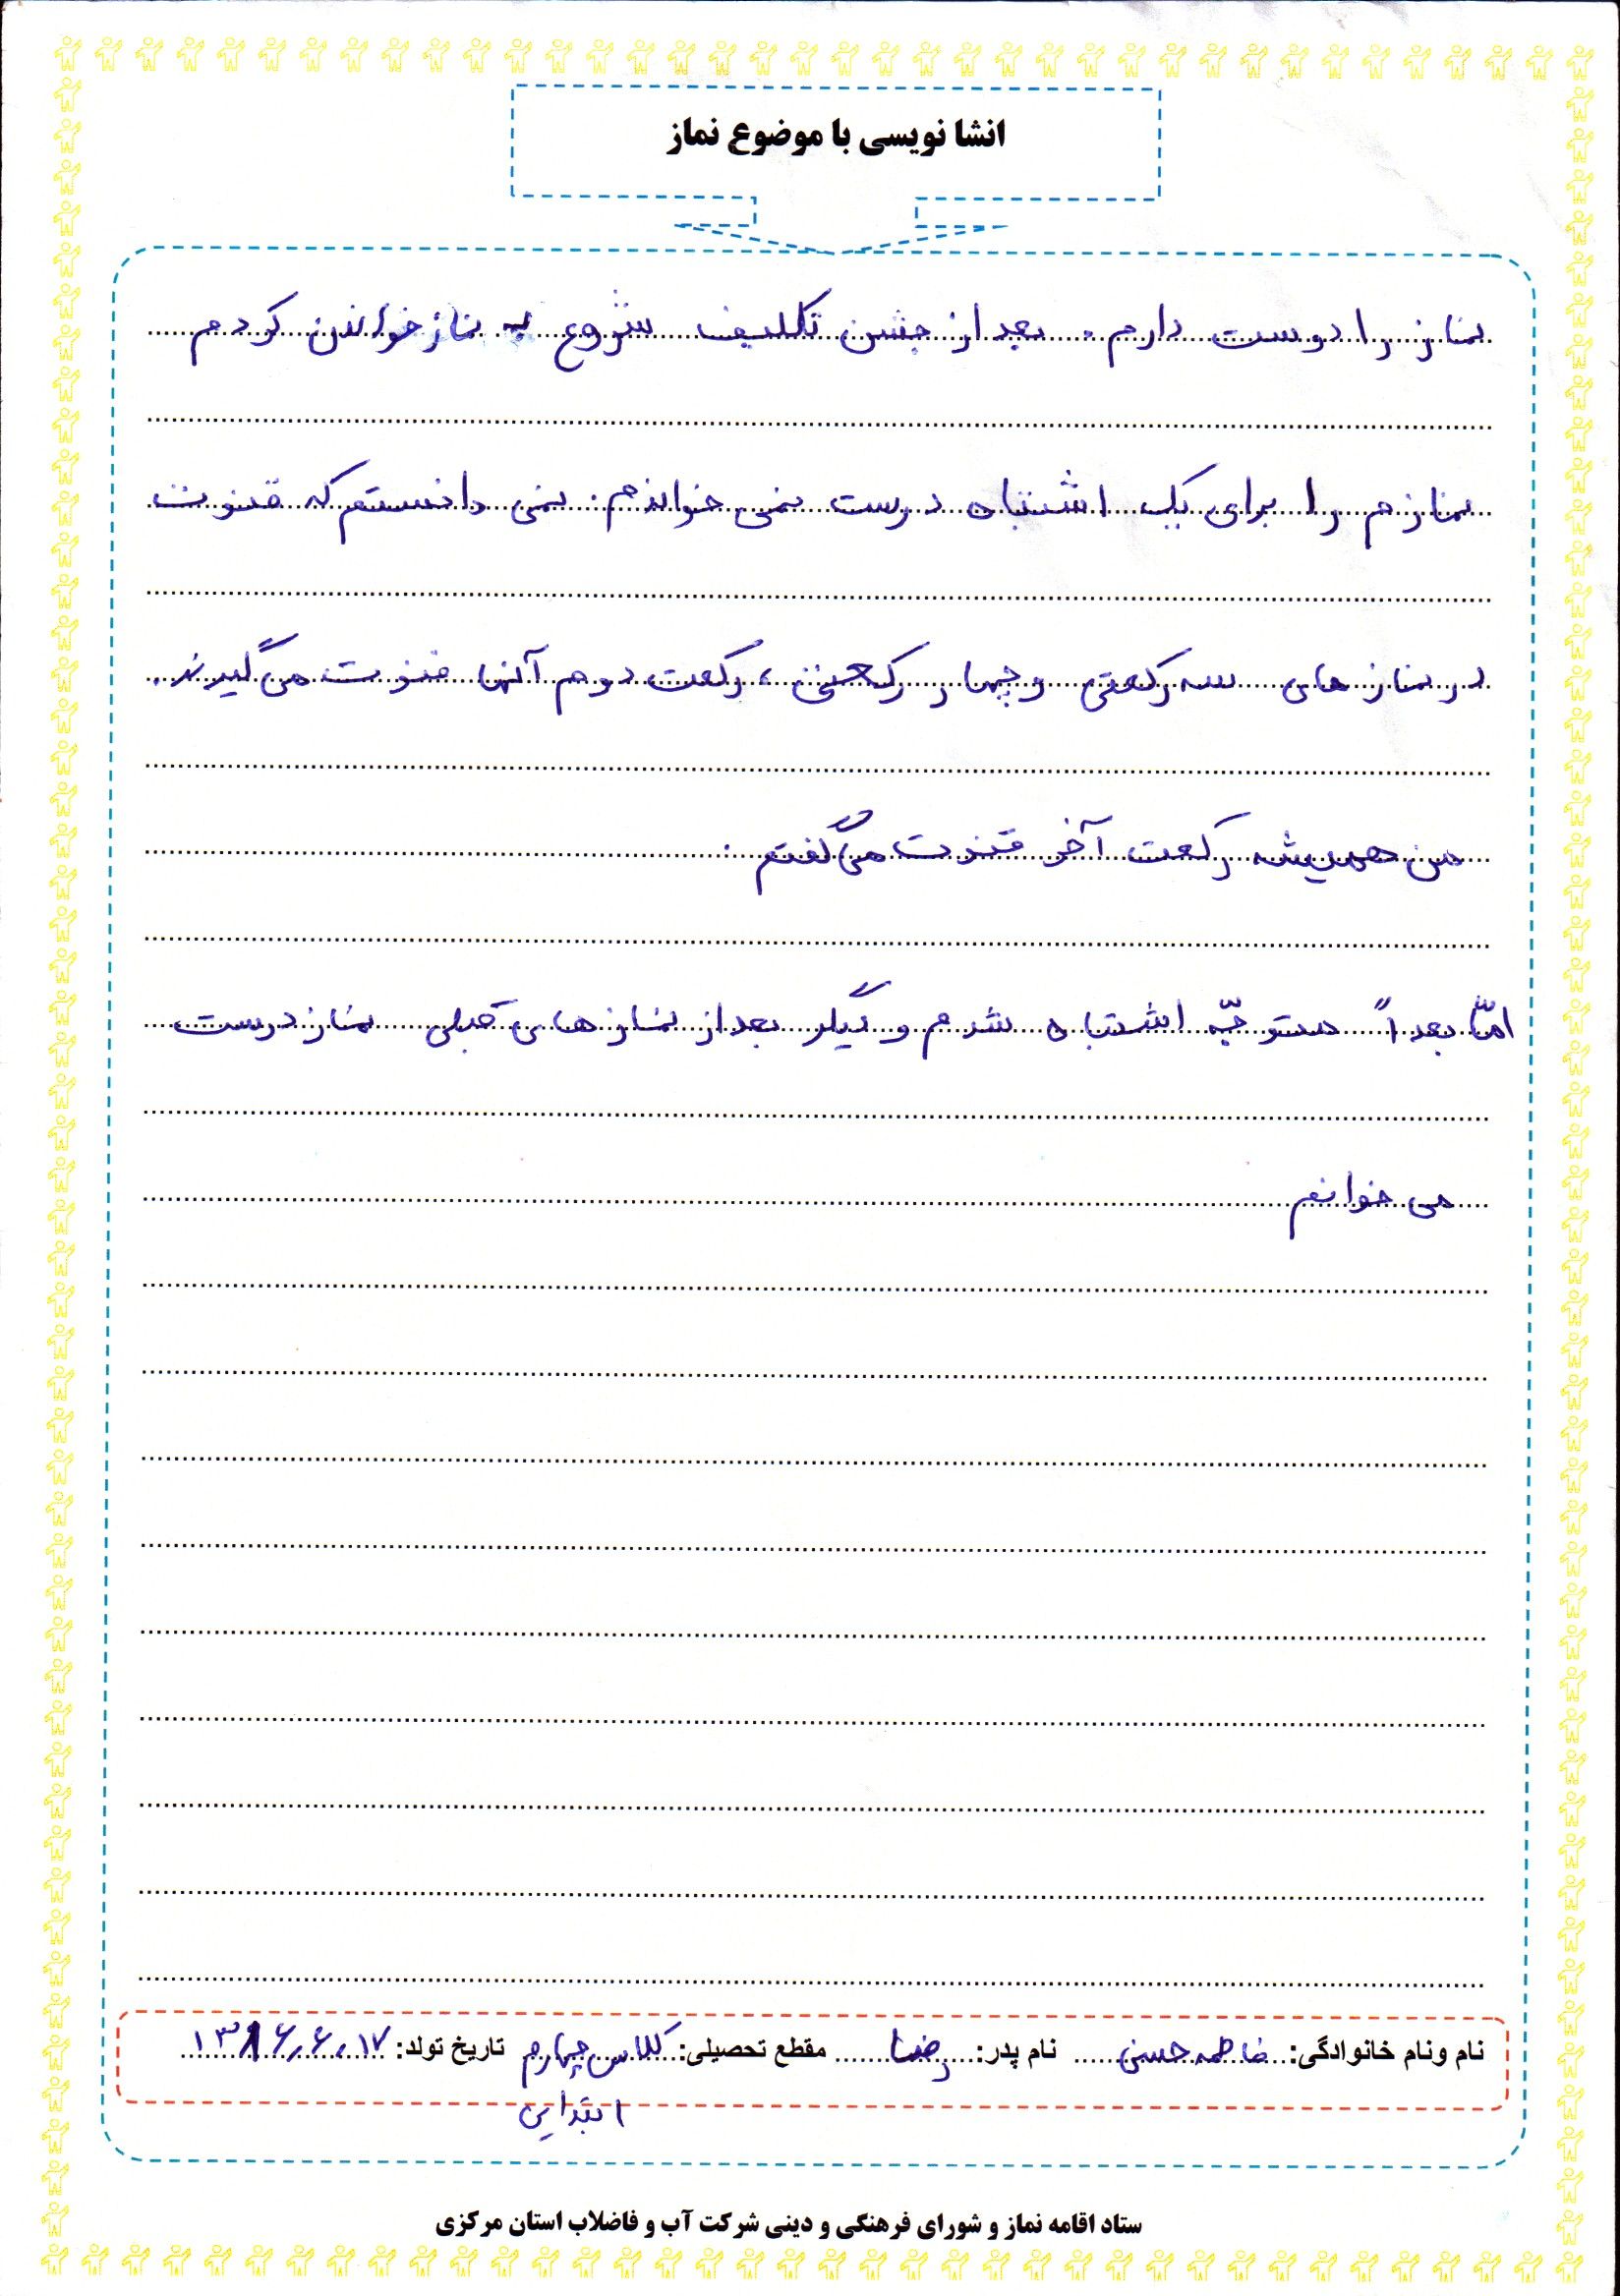 انشا نویسی با موضوع نماز
نماز را دوست دارم . بعد از جشن تکلیف شروع به نماز خواندن کردم
نمازم را برای یک اشتباه درست نمی خواندم . نمی دانستم که قنوت
در نماز های سه رکعتی و چهار رکعتی ، رکعت دوم آنها قنوت می گیرند .
من همیشه رکعت آخر قنوت می گفتم .
امّا بعداً متوجّه اشتباه شدم و دیگر بعد از نماز های قبلی نماز درست
می خوانم
نام ونام خانوادگی: فاطمه حسنی نام پدر: رضا مقطع تحصیلی: کلاس چهارم تاریخ تولد: ۱۳۸۶٫۶٫۱۷
ابتدایی
ستاد اقامه نماز و شورای فرهنگی و دینی شرکت آب و فاضلاب استان مرکزی